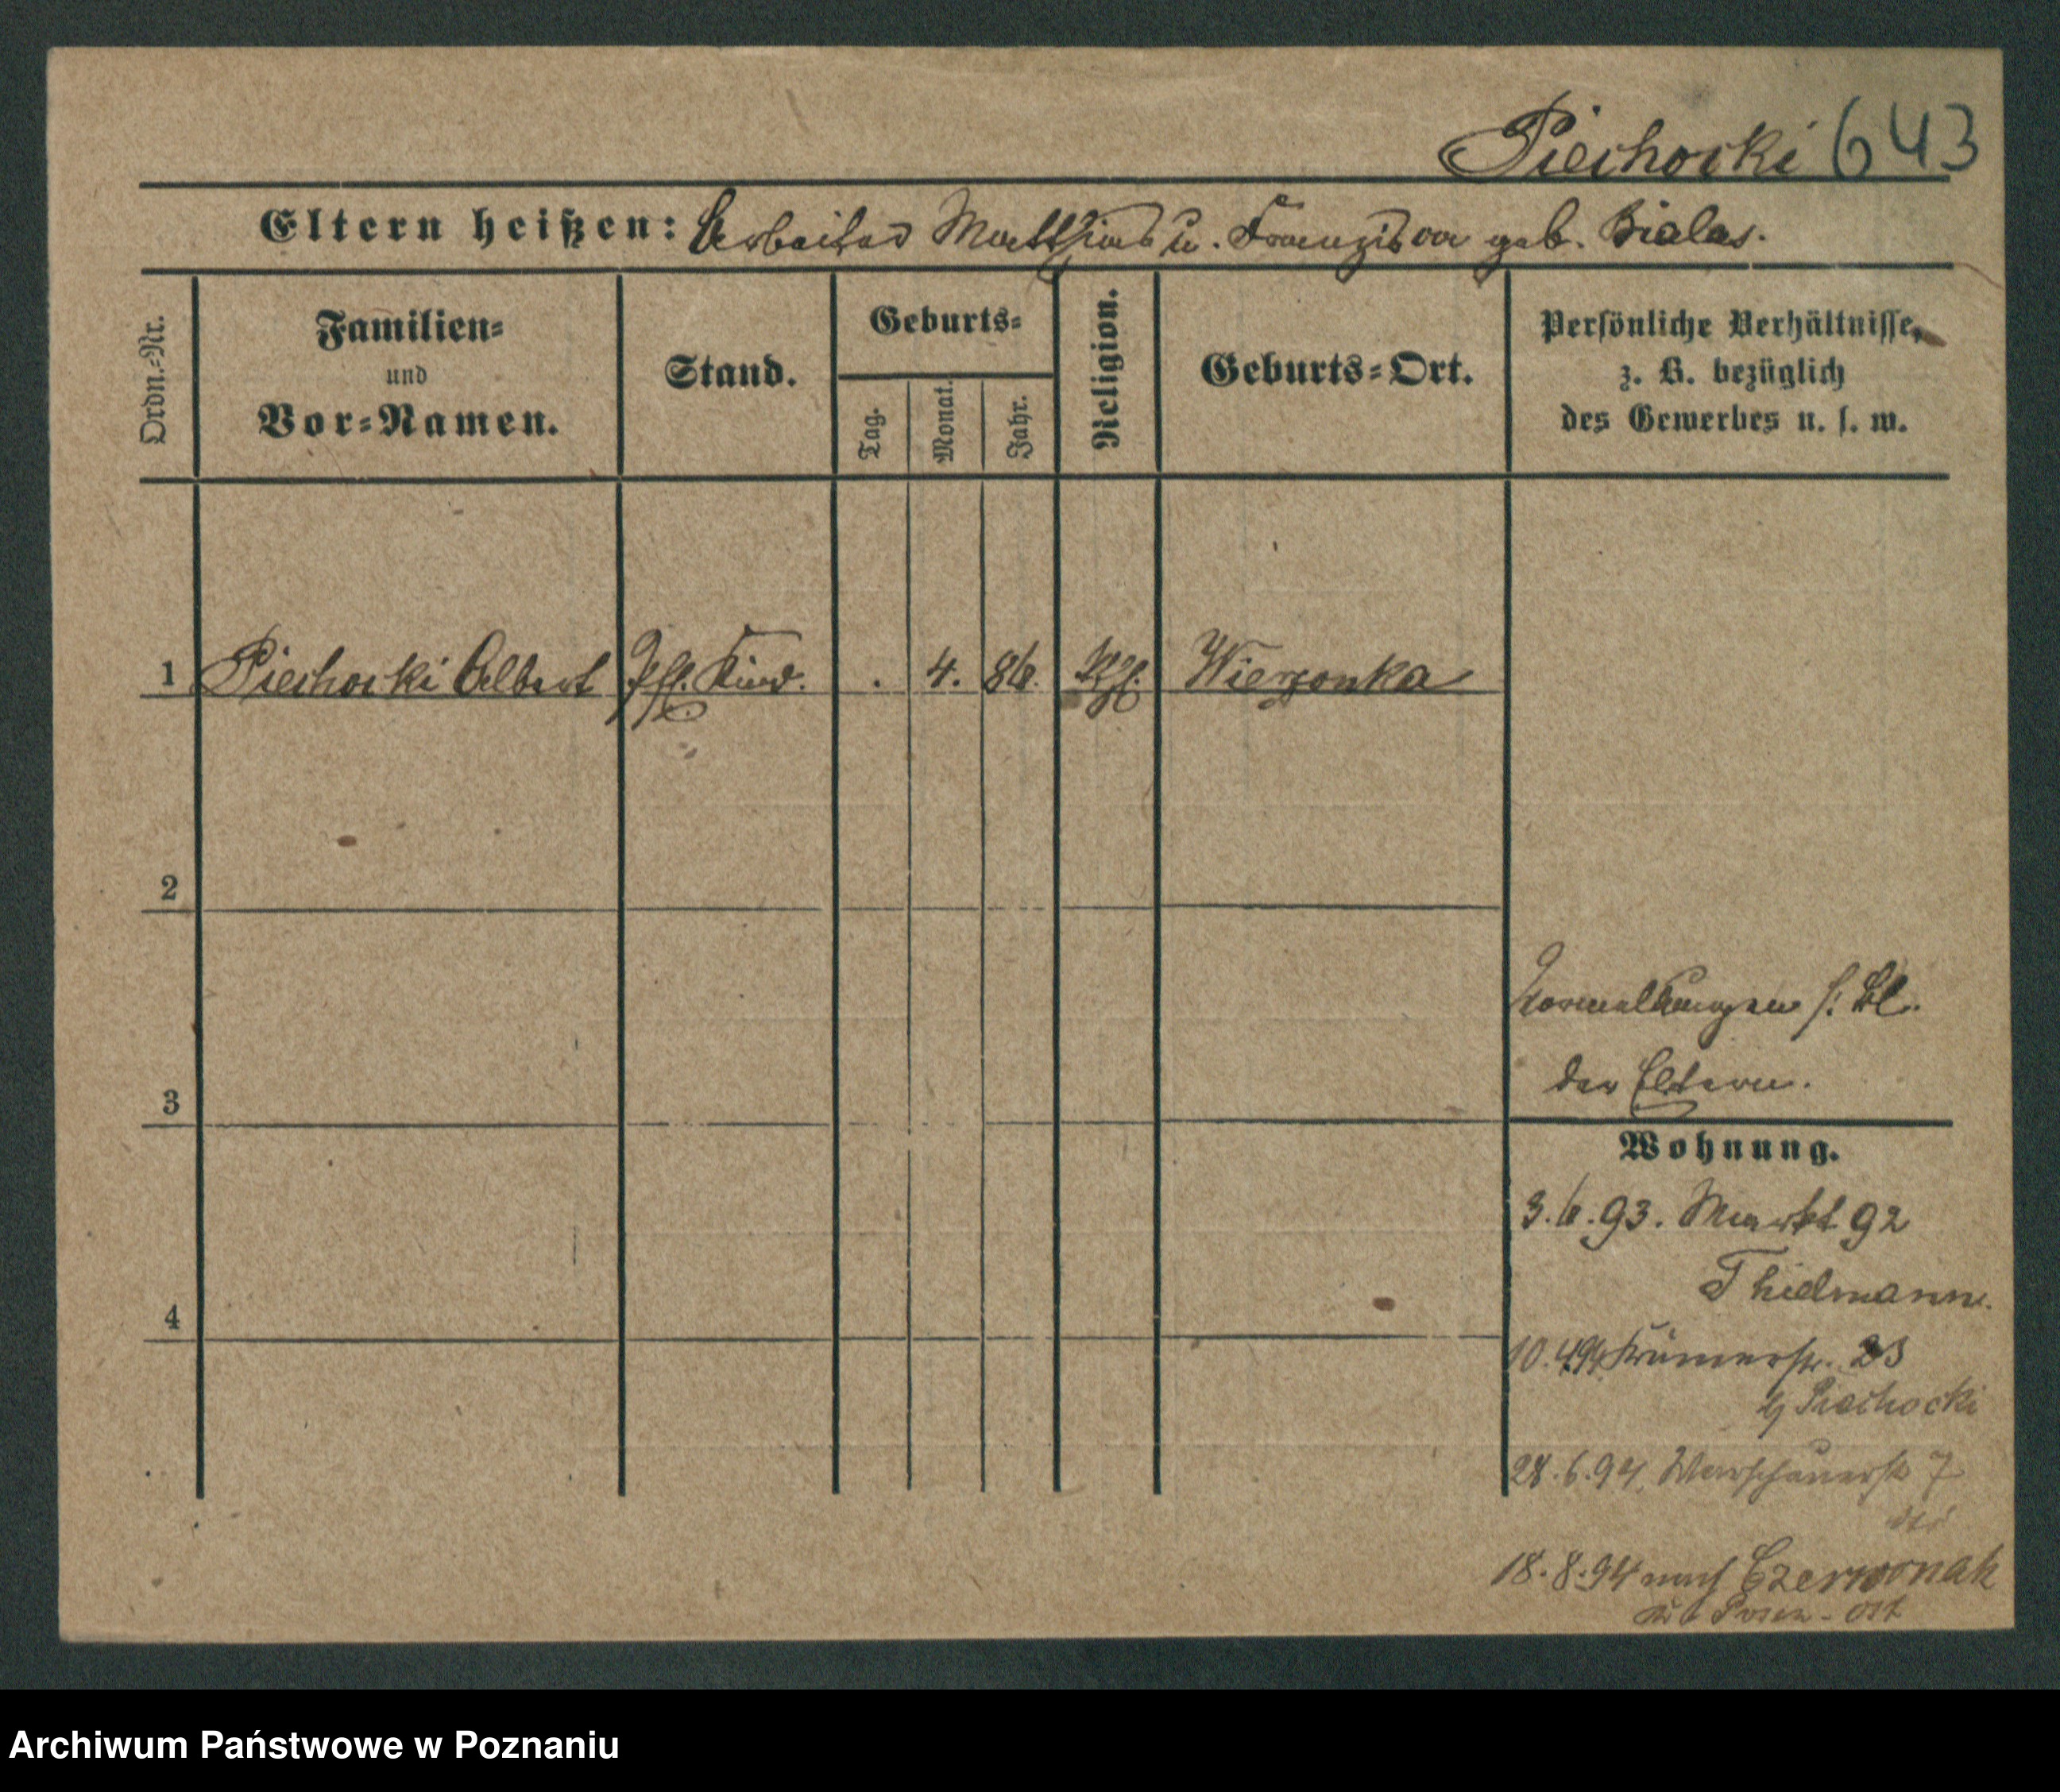 Piechocki 643
Eltern heißen: Arbeiter Matthias u. Franziska geb. Bialas.
Ordn.-Nr.
Familien-
und
Vor-Namen.
Stand.
Geburts-
Tag.
Monat.
Jahr.
Religion.
Geburts-Ort.
Persönliche Verhältnisse,
z. B. bezüglich
des Gewerbes u. s. w.
1 Piechocki Albert Pfl. Kind. . 4. 86. Kth. Wierzonka
2
3
4
f. Bl.
der Eltern.
Wohnung.
3.6.93. Markt 92
Thielmann.
10.4.94 23
Piechocki
28.6.94. Warschauerstr 7
18.8.94 nach Czerwonak
Kr Posen-Ost
Archiwum Państwowe w Poznaniu